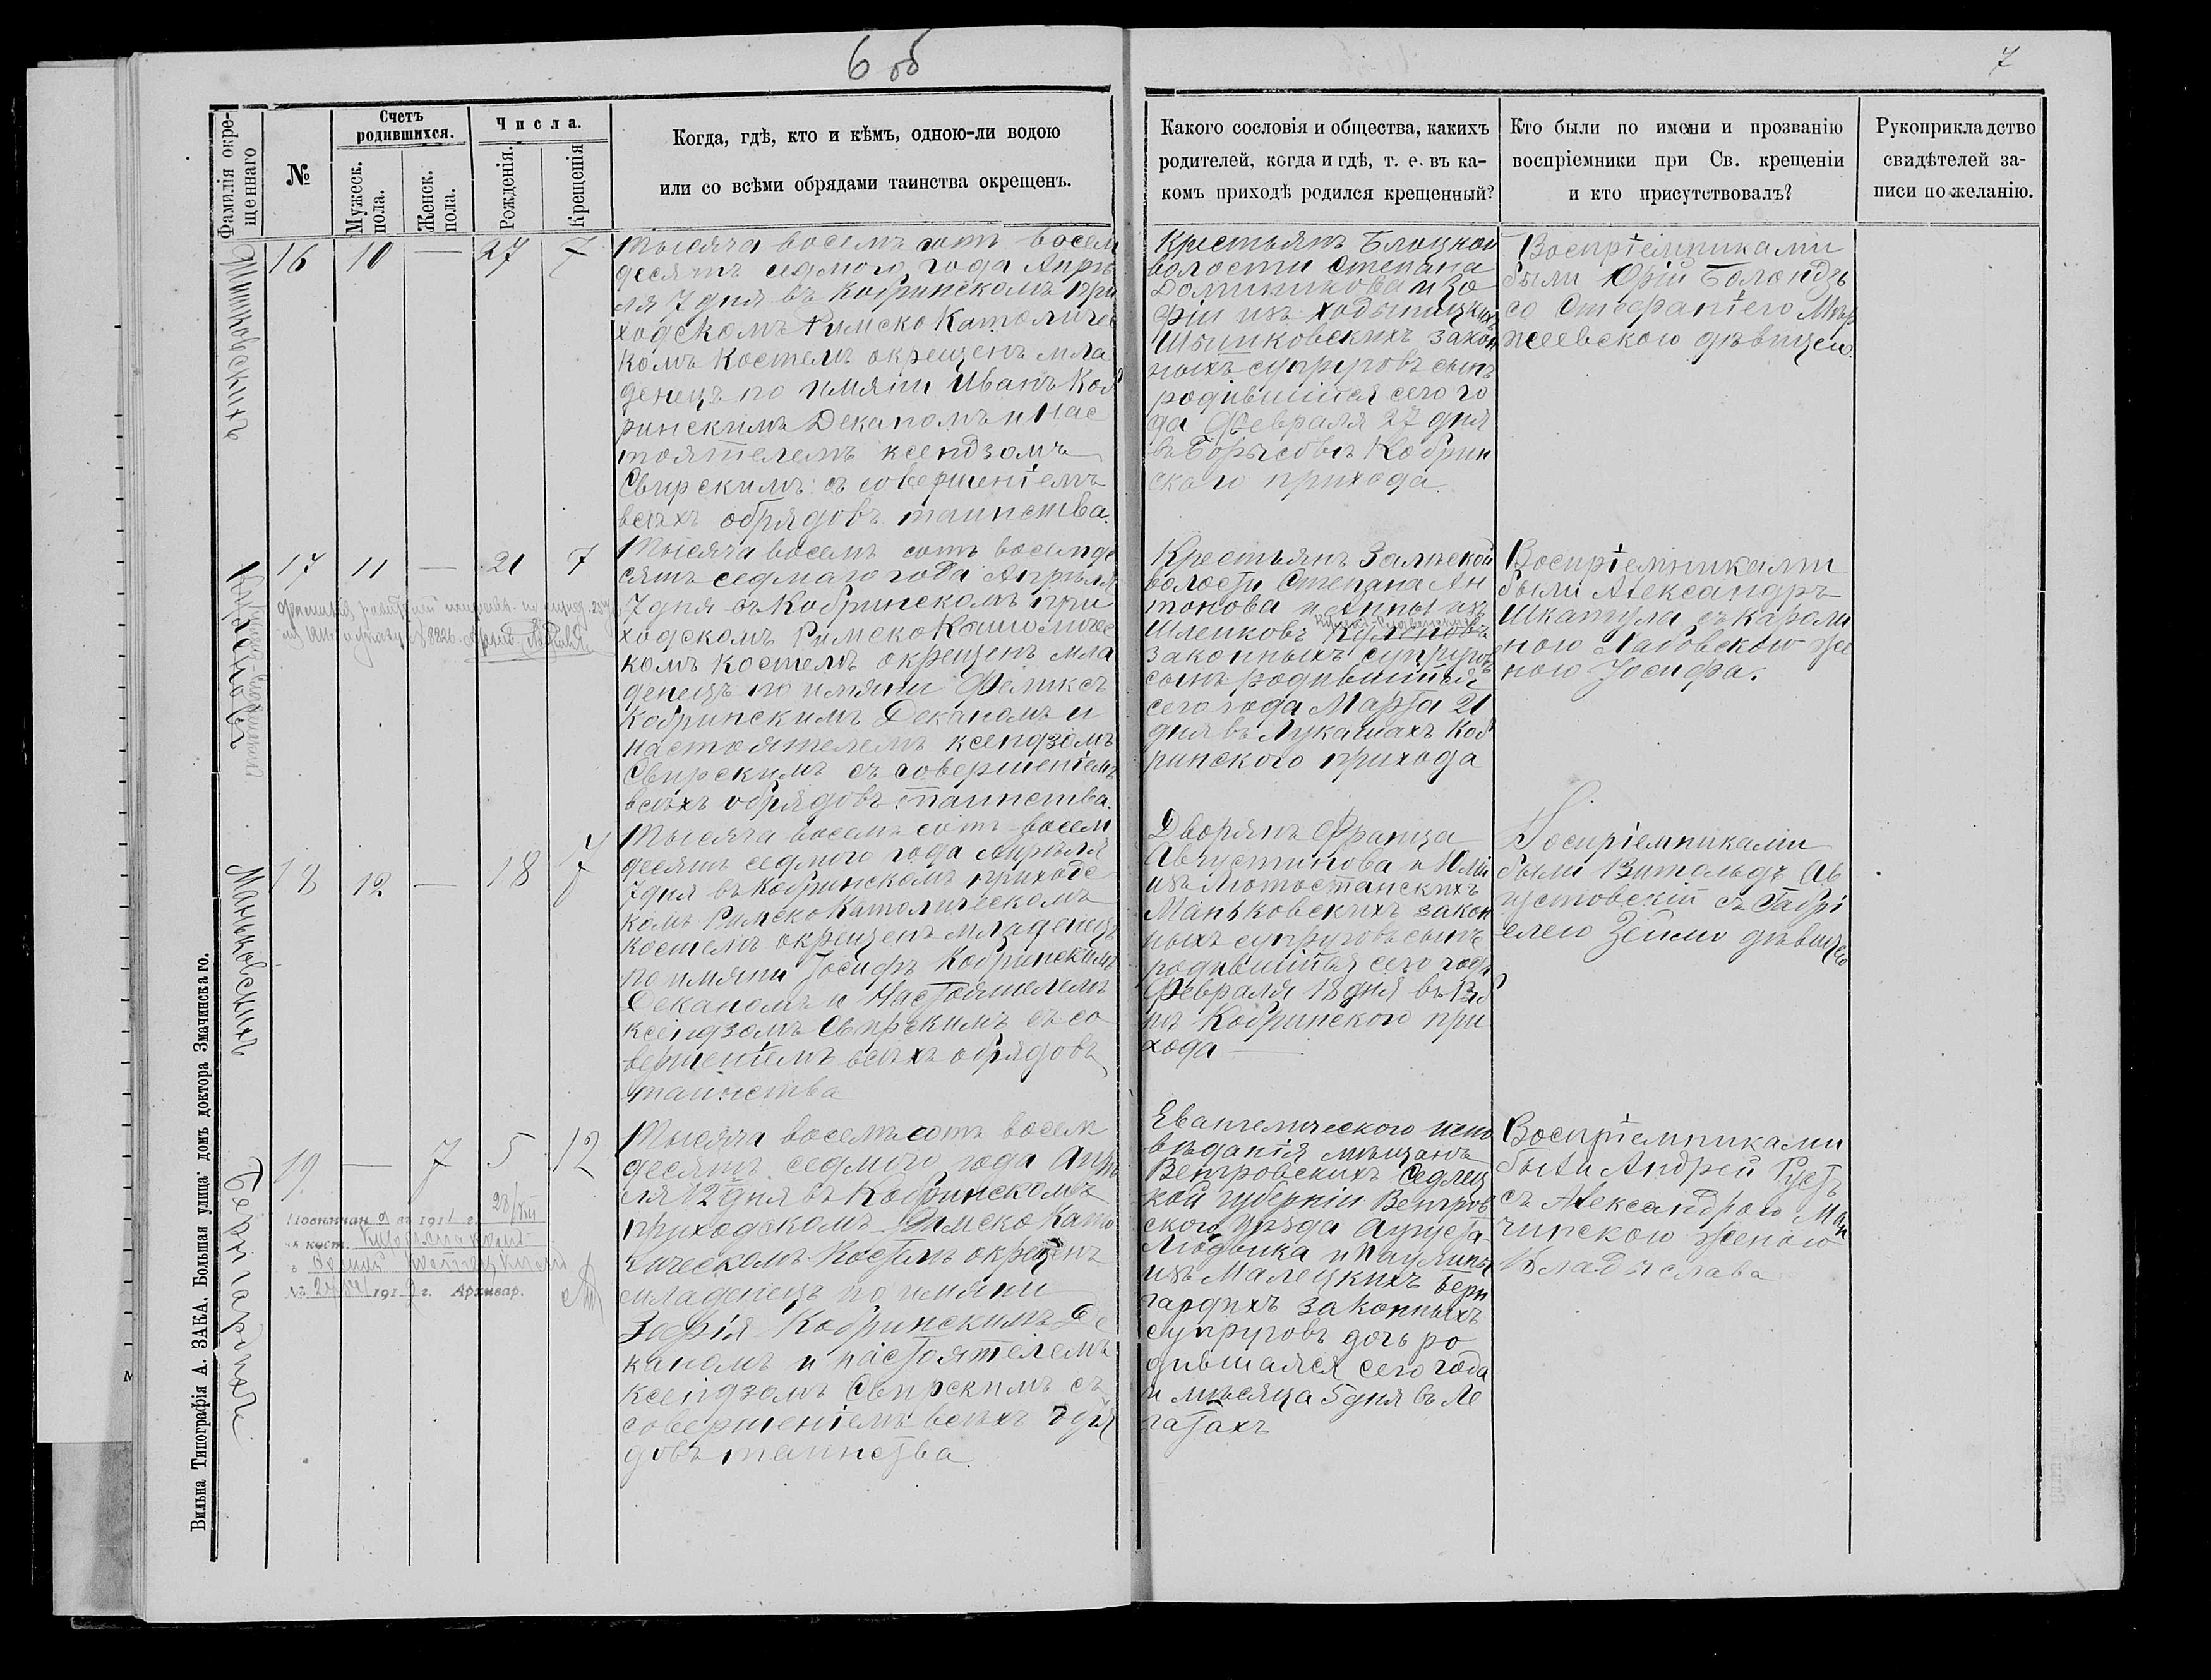 6 об
7
Фамилія окре-
щеннаго
№
Счетъ
родившихся.
Мужеск.
пола.
Женск.
пола.
Числа.
Рожденія.
Крещенія
Когда, гдѣ, кто и кѣмъ, одною-ли водою
или со всѣми обрядами таинства окрещенъ.
Какого сословія и общества, какихъ
родителей, когда и гдѣ, т. е. въ ка-
комъ приходѣ родился крещенный?
Кто были по имени и прозванію
воспріемники при Св. крещеніи
и кто присутствовалъ?
Рукоприкладство
свидѣтелей за-
писи по желанію.
Шишковскихъ
16 10 — 27 7
Тысяча восемъ сотъ восем
десятъ седмого года Апрѣ
ля 7 дня въ Кобринскомъ при
ходскомъ Римско Католичес
комъ Костелѣ окрещенъ мла
денецъ по имяни Иванъ Коб
ринскимъ Деканомъ и Нас
тоятелемъ ксендзомъ
Свирскимъ съ совершеніемъ
всѣхъ обрядовъ таинства.
Крестьянъ Блоцкой
волости Степана
Доминикова и Зо
фіи изъ Ходыницкихъ
Шишковскихъ закон
ныхъ супруговъ сынъ
родившійся сего го
да Февраля 27 дня
въ Борысовѣ Кобрин
скаго прихода.
Воспріемниками
были Юрій Болондзь
со Стефаніею Мѣр
жеевскою дѣвицею.
17 11 — 21 7
Тысяча восемъ сотъ восемде
сятъ седмаго года Апрѣля
7 дня въ Кобринскомъ при
ходскомъ Римско Католичес
комъ Костелѣ окрещенъ мла
денецъ по имяни Феликсъ
Кобринскимъ Деканомъ и
настоятелемъ ксендзомъ
Свирскимъ съ совершеніемъ
всѣхъ обрядовъ таинства.
Крестьянъ Залѣской
волости Степана Ан
тонова и Анны изъ
Шлепковъ
законныхъ супруговъ
сынъ родившійся
сего года Марта 21
дня въ Лукашахъ Коб
ринского прихода
Воспріемниками
были Александръ
Шкатула съ Кароли
ною Лабовскою же
ною Іосифа.
Маньковскихъ
18 12 — 18 7
Тысяча восемъ сотъ восем
десятъ седмого года Апрѣля
7 дня въ Кобринскомъ приходс
комъ Римско Католическомъ
костелѣ окрещенъ младенецъ
по имяни Іосифъ Кобринскимъ
Деканомъ и Настоятелемъ
ксендзомъ Свирскимъ съ со
вершеніемъ всѣхъ обрядовъ
таинства
Дворянъ Франца
Августинова и Юліи
изъ Лютостанскихъ
Маньковскихъ закон
ныхъ супруговъ сынъ
родившійся сего года
Февраля 18 дня въ
Кобринского при
хода —
Воспріемниками
были Витольдъ Ав
густовскій съ Габрі
елею Зеймо дѣвицею
Бернгардихъ
19 — 7 5 12
28/VIII
1911 г.
№ 191 г. Архивар.
Тысяча восемъ сотъ восем
десятъ седмого года Апрѣ
ля 12 дня въ Кобринскомъ
приходскомъ Римско Като
лическомъ Костелѣ окрещенъ
младенецъ по имяни
Зофія Кобринскимъ Де
каномъ и настоятелемъ
ксендзомъ Свирскимъ съ
совершеніемъ всѣхъ обря
довъ таинства.
Евангелического испо
вѣданія мѣщанъ
Венгровскихъ Седлец
кой губерніи Венгров
ского уѣзда Августа
Людвика и Паулины
изъ Малецкихъ Берн
гардихъ законныхъ
супруговъ дочь ро
дившаяся сего года
и мѣсяца 5 дня въ Ле
гатахъ
Воспріемниками
были Андрей Густъ
съ Александрою Ма
чинскою женою
Владыслава
Вильна Типографія А. ЗАКА, Большая улица домъ доктора Змачинскаго.